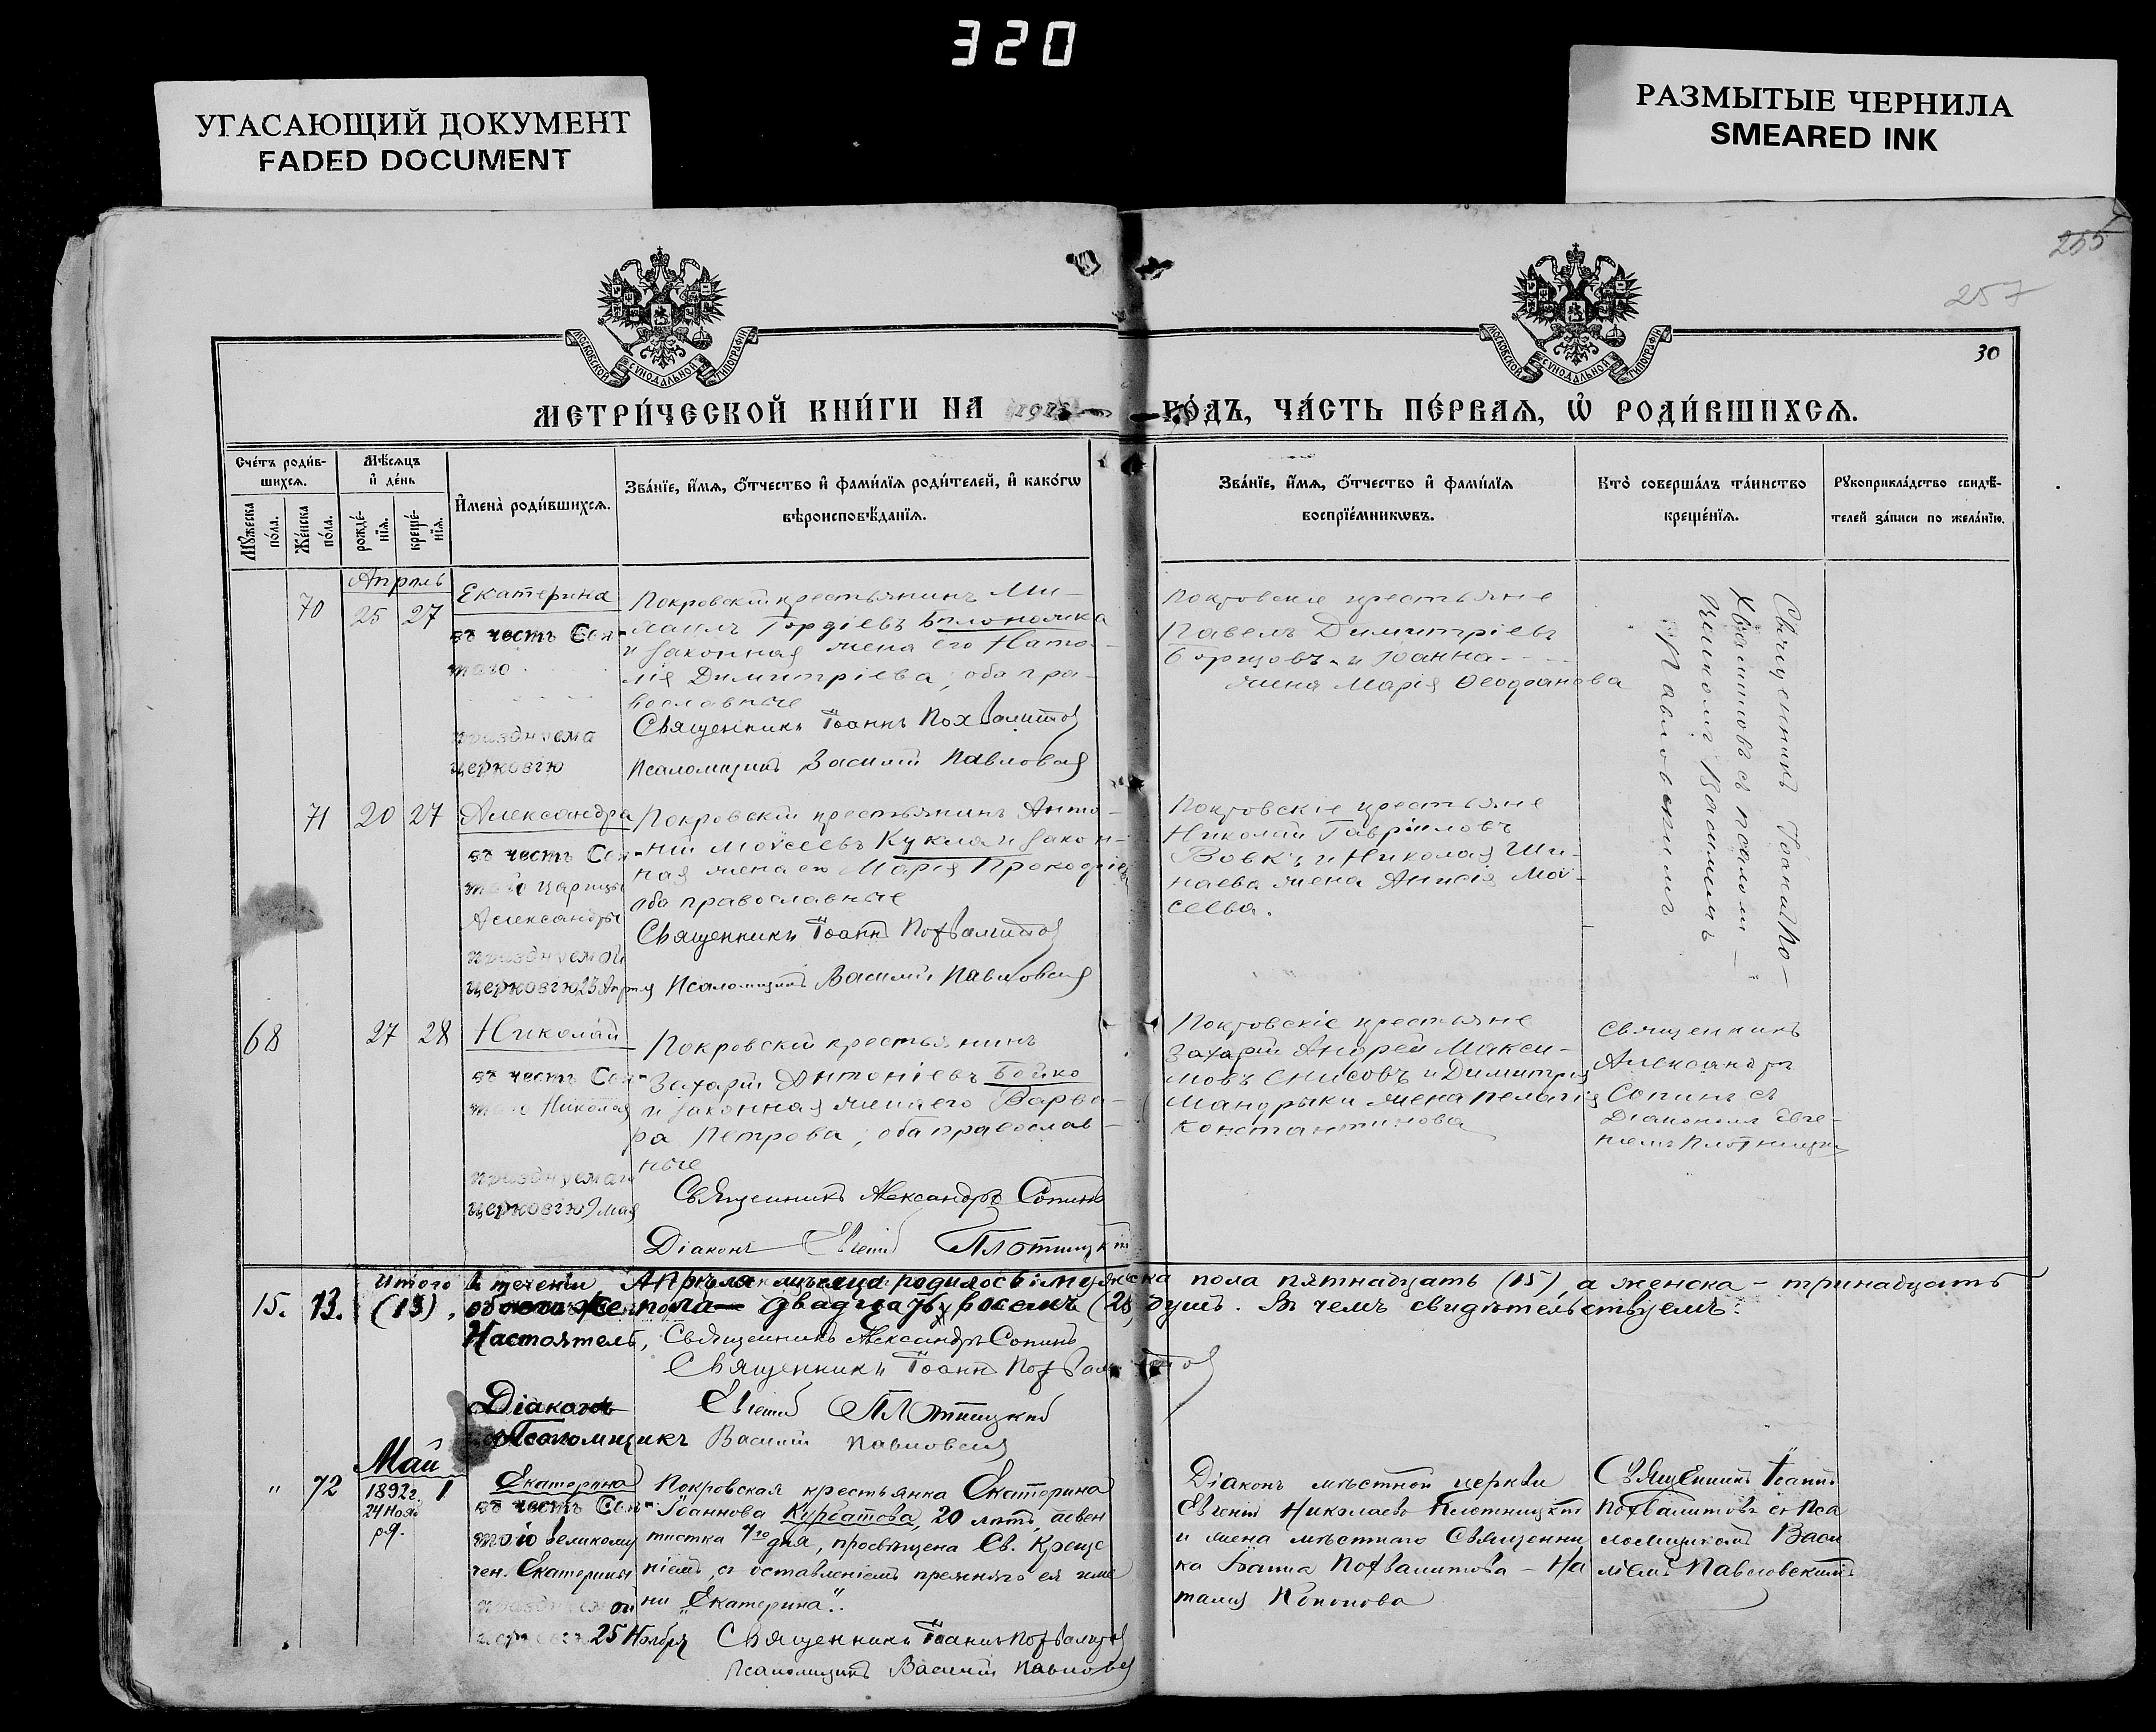 320
УГАСАЮЩИЙ ДОКУМЕНТ
FADED DOCUMENT
РАЗМЫТЫЕ ЧЕРНИЛА
SMEARED INK
255
257
30
МОСКОВСКОЙ СУНОДАЛЬНОЙ ТИПОГРАФІИ
МОСКОВСКОЙ СУНОДАЛЬНОЙ ТИПОГРАФІИ
МЕТРИ́ЧЕСКОЙ КНИ́ГИ НА
ГО́ДЪ, ЧА́СТЬ ПЕ́РВАЯ, Ѡ҆ РОДИ́ВШИХСЯ.
Сче́тъ роди́в-
шихся.
Мѣ́сяцъ
и҆ де́нь
Мꙋ́жеска
по́ла.
Же́нска
по́ла.
рожде́-
нїя.
креще́-
нїя.
И҆мена̀ роди́вшихся.
Зва́нїе, и҆́мя, ѻ҆́тчество и҆ фами́лїя роди́телей, и҆ како́гѡ
вѣроисповѣ́данїя.
Зва́нїе, и҆́мя, ѻ҆́тчество и҆ фами́лїя
воспрїе́мникѡвъ.
Кто̀ соверша́лъ та́инство
креще́нїя.
Рꙋкоприкла́дство свидѣ́-
телей за́писи по жела́нїю.
Апрѣль
70
25 27
Екатерина
въ честь Свя-
того
празднуема
церковію
Покровскій крестьянинъ Ми-
хаилъ Гордіевъ Бѣлоножка
и законная жена его Ната-
лія Димитріева, оба пра-
вославные
Священникъ Іоаннъ Похвалитов
Псаломщикъ Василій Павловск
Покровскіе крестьяне
Павелъ Димитріевъ
Борцовъ и Іоанна
жена Марія Ѳеофанова
Священникъ Іоаннъ По-
хвалитовъ съ псалом-
щикомъ Василіемъ
Павловскимъ
71
20 27
Александра
въ честь Свя-
той Царицы
Александры
празднуемой
церковію 23 Апрѣля
Покровскій крестьянинъ Анто-
ній Моѵсеевъ Кукла и закон-
ная жена его Марія Прокофіе
оба православные
Священникъ Іоаннъ Похвалитов
Псаломщикъ Василій Павловск
Покровскіе крестьяне
Николай Гавріиловъ
Вовкъ и Николая Ши-
наева жена Анисія Мой-
сеева.
68
27 28
Николай
въ честь Свя-
того Николая
празднуемаго
церковію 9 мая
Покровскій крестьянинъ
Захарій Антоніевъ Бойко
и законная жена его Варва-
ра Петрова, оба православ-
ные
Священникъ Александръ Сопинъ
Діаконъ Евгеній Плотницкій
Покровскіе крестьяне
Захарій Андрей Макси-
мовъ Енисовъ и Димитрія
Мандрыки жена Пелагія
Константинова
Священникъ
Александръ
Сопинъ съ
Діакономъ Евге-
ніемъ Плотницки
15. 13.
Итого въ теченіи Апрѣля мѣсяца родилось: мужеска пола пятнадцать (15), а женска - тринадцать
(13), обоего же пола двадцать восемь (28) душъ. Въ чемъ свидѣтельствуемъ:
Настоятель, Священникъ Александръ Сопинъ
Священникъ Іоаннъ Похвалитов
Діаконъ Евгеній Плотницкій
Псаломщикъ Василій Павловск
Май
" 72
1892 г. 1
24 Нояб
р.
Екатерина
въ честь Свя-
той великому
чен. Екатерины
празднуемой
церковію 25 Ноября
Покровская крестьянка Екатерина
Іоаннова Курбатова, 20 лѣтъ, адвен
тистка 7го дня, просвѣщена Св. Креще
ніемъ, съ оставленіемъ прежняго ея име
ни „Екатерина".
Священникъ Іоаннъ Похвалитов
Псаломщикъ Василій Павловск
Діаконъ мѣстной церкви
Евгеній Николаевъ Плотницкій
и жена мѣстнаго Священни
ка Іоанна Похвалитова - На
талія Кононова
Священникъ Іоаннъ
Похвалитовъ съ Пса
ломщикомъ Васи
ліемъ Павловскимъ